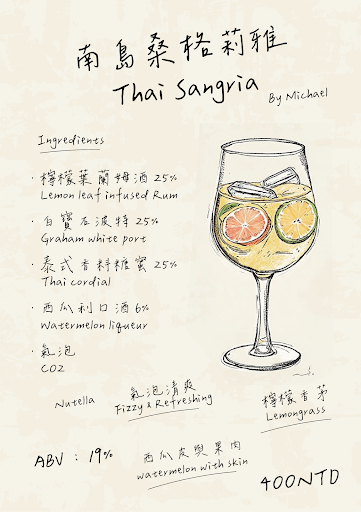 南島桑格莉雅
Thai Sangria
By Michael
Ingredients
· 檸檬葉蘭姆酒 25%
Lemon leaf infused Rum
· 白寶石波特 25%
Graham white port
· 泰式香料糖蜜 25%
Thai cordial
· 西瓜利口酒 6%
Watermelon liqueur
· 氣泡
CO2
Nutella
氣泡清爽
Fizzy & Refreshing
檸檬香茅
Lemongrass
ABV : 19%
西瓜皮與果肉
watermelon with skin
400NTD